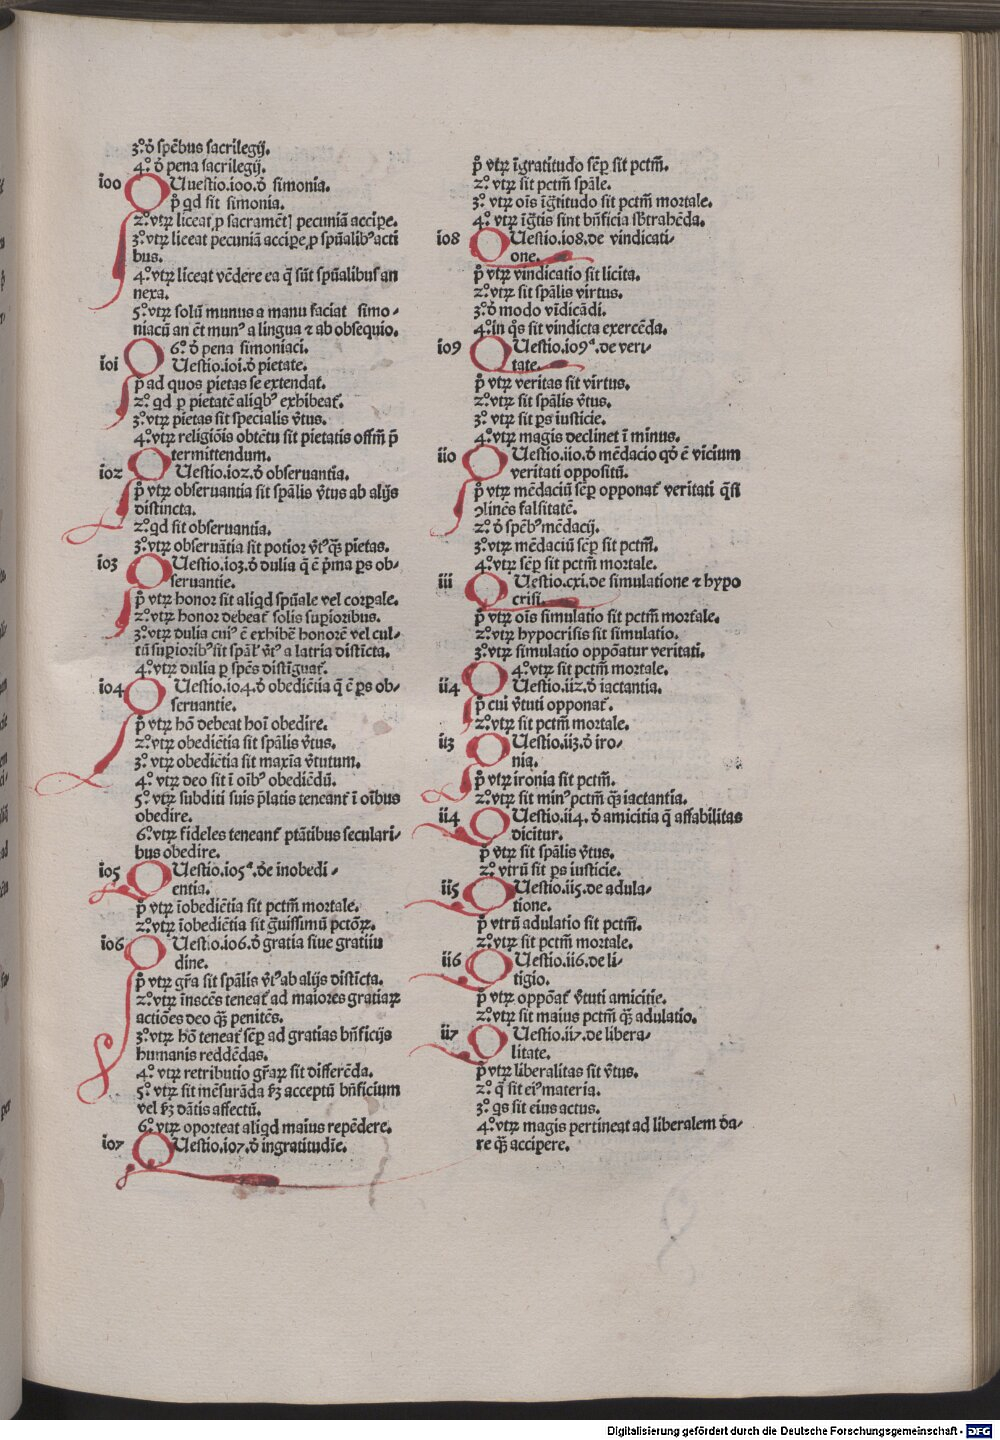 3.º ð spēbus sacrilegij.
4.º ð pena sacrilegij.
ioo QUuestio.ioo.ð simonia.
p̊ qd sit simonia.
2.ºvtꝝ liceat ꝓ sacramēt] pecuniā accipe.
3.ºvtꝝ liceat pecuniā accipe ꝓ spūalibꝰacti
bus.
4.ºvtꝝ liceat vēdere ea q̄ sūt spūalibus an
nexa.
5.ºvtꝝ solū munus a manu faciat simo-
niacū an ēt munꝰ a lingua ⁊ ab obsequio.
6.º ð pena simoniaci.
ioi QUestio.ioi.ð pietate.
p̊ ad quos pietas se extendat̄.
2.º qd ꝑ pietatē aliqbꝰ exhibeat̄.
3.ºvtꝝ pietas sit specialis v̄tus.
4.ºvtꝝ religiōis obtētu sit pietatis offm̄ p̄
termittendum.
io2 QUestio.io2.ð obseruantia.
p̊ vtꝝ obseruantia sit spālis v̄tus ab alijs
distincta.
2.ºqd sit obseruantia.
3.ºvtꝝ obseruātia sit potior v̄tꝰq̄ꝫ pietas.
io3 QUestio.io3.ð dulia q̄ ē p̄ma ꝑs ob-
seruantie.
p̊ vtꝝ honor sit aliqd spūale vel corꝑale.
2.ºvtꝝ honor debeat̄ solis suꝑioribus.
3.ºvtꝝ dulia cuiꝰ ē exhibē honorē vel cul-
tū suꝑioribꝰsit spāl' v̄tꝰ a latria distīcta.
4.ºvtꝝ dulia ꝑ spēs distīguat̄.
io4 QUestio.io4.ð obediētia q̄ ē ꝑs ob-
seruantie.
p̊ vtꝝ hō debeat hoī obedire.
2.ºvtꝝ obediētia sit spālis v̄tus.
3.º vtꝝ obediētia sit maxīa v̄tutum.
4.º vtꝝ deo sit ī oībꝰ obediēdū.
5.º vtꝝ subditi suis p̄latis teneant̄ ī oībus
obedire.
6.ºvtꝝ fideles teneant̄ ptātibus seculari-
bus obedire.
io5 QUestio.io5ª.de inobedi-
entia.
p̊ vtꝝ īobediētia sit pctm̄ mortale.
2.ºvtꝝ īobediētia sit ḡuissimū pctōꝝ.
io6 QUestio.io6.ð gratia siue gratiiu
dine.
p̊ vtꝝ gr̄a sit spālis v̄tꝰab alijs distīcta.
2.ºvtꝝ īnscēs teneat̄ ad maiores gratiaꝝ
actiōes deo q̄ꝫ penitēs.
3.ºvtꝝ hō teneat̄ sēꝑ ad gratias bn̄ficijs
humanis reddēdas.
4.º vtꝝ retributio gr̄aꝝ sit differēda.
5.º vtꝝ sit mēsurāda ẜꝫ acceptū bn̄ficium
vel ẜꝫ dātis affectū.
6.ºvtꝝ oporteat aliqd maius repēdere.
io7 QUestio.io7.ð ingratitudīe.
p̊ vtꝝ īgratitudo sēꝑ sit pctm̄.
2.º vtꝝ sit pctm̄ spāle.
3.º vtꝝ oīs īḡtitudo sit pctm̄ mortale.
4.º vtꝝ īḡtis sint bn̄ficia sb̄trabēda.
io8 QUestio.io8.de vindicati-
one.
p̊ vtꝝ vindicatio sit licita.
2.ºvtꝝ sit spālis virtus.
3.ºð modo vīdicādi.
4.ºin q̊s sit vindicta exercēda.
io9 QUestio.io9ª.de veri-
tate.
p̊ vtꝝ veritas sit virtus.
2.ºvtꝝ sit spālis v̄tus.
3.º vtꝝ sit ꝑs iusticie.
4.ºvtꝝ magis declinet ī minus.
iio QUestio.iio.ð mēdacio qð ē vicium
veritati oppositū.
p̊ vtꝝ mēdaciū sēꝑ opponat̄ veritati q̄si
ꝯtinēs falsitatē.
2.º ð spēbꝰmēdacij.
3.ºvtꝝ mēdaciū sēꝑ sit pctm̄.
4.ºvtꝝ sēꝑ sit pctm̄ mortale.
iii QUestio.cxi.de simulatione ⁊ hypo
crisi.
p̊ vtꝝ oīs simulatio sit pctm̄ mortale.
2.ºvtꝝ hypocrisis sit simulatio.
3.ºvtꝝ simulatio oppōatur veritati.
4.ºvtꝝ sit pctm̄ mortale.
ii4 QUestio.ii2.ð iactantia.
p̊ cui v̄tuti opponat̄.
2.ºvtꝝ sit pctm̄ mortale.
ii3 QUestio.ii3.ð iro-
nia.
p̊ vtꝝ ironia sit pctm̄.
2.ºvtꝝ sit minꝰpctm̄ q̄ꝫ iactantia.
ii4 QUestio.ii4. ð amicitia q̄ affabilitas
dicitur.
p̊ vtꝝ sit spālis v̄tus.
2.º vtrū sit ꝑs iusticie.
ii5 QUestio.ii5.de adula-
tione.
p̊ vtrū adulatio sit pctm̄.
2.ºvtꝝ sit pctm̄ mortale.
ii6 QUestio.ii6.de li-
tigio.
p̊ vtꝝ oppōat̄ v̄tuti amicitie.
2.ºvtꝝ sit maius pctm̄ q̄ꝫ adulatio.
ii7 QUestio.ii7.de libera-
litate.
p̊ vtꝝ liberalitas sit v̄tus.
2.º q̄ sit eiꝰmateria.
3.º qs sit eius actus.
4.ºvtꝝ magis pertineat ad liberalem da-
re q̄ꝫ accipere.
Digitalisierung gefördert durch die Deutsche Forschungsgemeinschaft - DFG